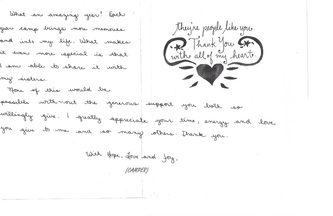 What an amazing year! Each
year camp brings more memories
and into my life. What makes
it even more special is that
I am able to share it with
my sisters.
None of this would be
possible with-out the generous support you both so
willingly give. I greatly appreciate your time, energy and love
you give to me and so many others. Thank you.
With Hope, Love and Joy,
(CAMPER)
they're people like you.
Thank You
with all of my heart